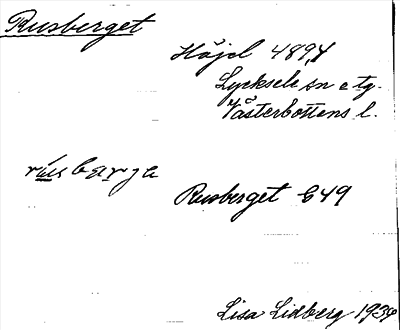 Rusberget
Höjd 489,4
Lycksele sn o tg.
Västerbottens l.
Rusberget 649
Lisa Lidberg 1934